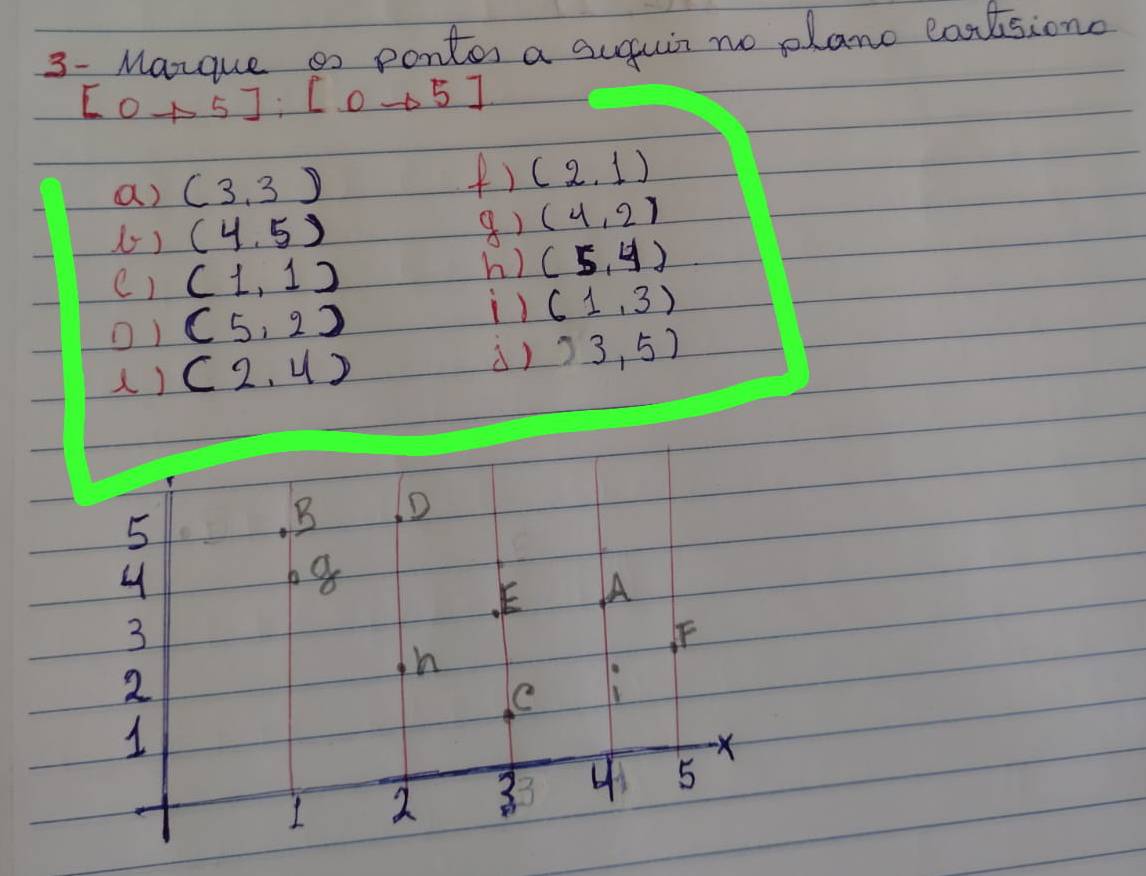 3- Marque os pontos a seguir no plano cartisiono
[0→5]; [0→5]
a) (3,3)
b) (4,5)
c) (1,1)
D) (5,2)
e) (2,4)
f) (2,1)
g) (4,2)
h) (5,4)
i) (1,3)
j) )3,5)
5 B D
4 g
3 E A
2 h F
1 C i
x
1 2 3 4 5